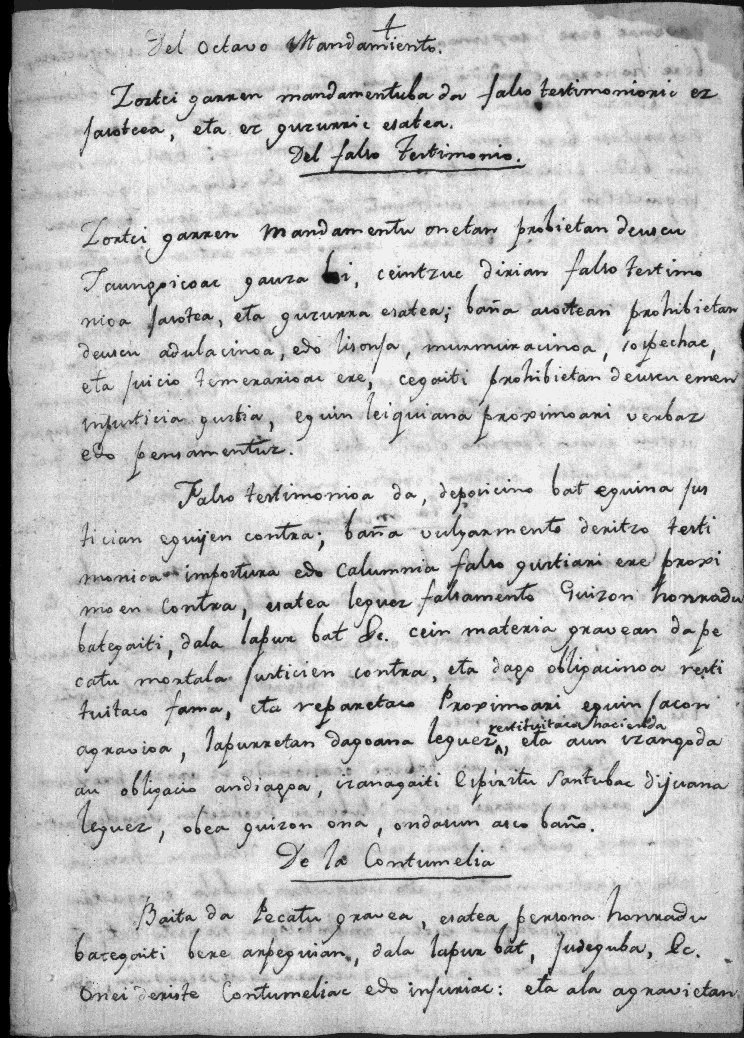 Del Octavo Mandamiento.
Zortci garren mandamentuba da falso testimonioric ez
jasoteea, eta ez guzurric esatea.
Del falso Testimonio.
Zortci garren Mandamentu onetan probietan deuscu
Jaungoicoac gauza bi, ceintzuc dirian falso testimo
nioa jasotea, eta guzurra esatea; baña asostean prohibietan
deuscu adulacinoa, edo lisonja, murmuracinoa, sospechac,
eta juicio temerarioac ere, cegaiti prohibietan deuscu emen
injusticia gustia, eguin leiquiana proximoari verbaz
edo pensamentuz.
Falso testimonioa da, deposicino bat eguina jus
tician eguijen contra; baña vulgarmento deritzo testi
monioa impostura edo calumnia falso gustiari ere proxi
moen contra, esatea leguez falsamento Guizon honradu
bategaiti, dala lapur bat &c. cein materia gravean da pe
catu mortala justicien contra, eta dago obligacinoa resti
tuitaco fama, eta reparetaco Proximoari eguin jacon
agravioa, lapurretan dagoana leguez restituitaca hacienda, eta aun izangoda
au obligacio andiagoa, izanagaiti Espiritu Santubac dijuana
leguez, obea guizon ona, ondasun asco baño.
De la Contumelia
Baita da Pecatu gravea, esatea persona honradu
bategaiti bere arpeguian, dala lapur bat, Judeguba, &c.
Onei deriste Contumeliac edo injuriac: eta ala agravietan